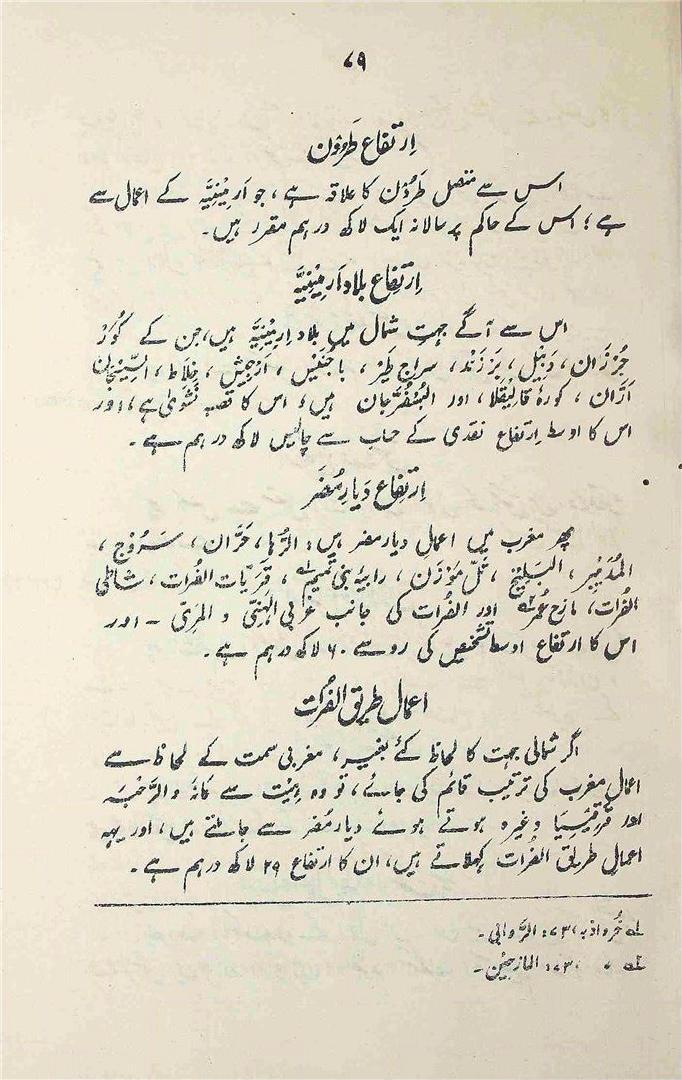 ۷۹
اِرتفاع طَرُوُن
اس سے متصل طَرُوُن کا علاقہ ہے، جو اَرمِیْنِیَّہ کے اعمال سے
ہے؛ اس کے حاکم پر سالانہ ایک لاکھ درہم مقرر ہیں۔
اِرتِفاع بلاد اَرمِیْنِیَّہ
اس سے آگے جہت شمال میں بلاد اِرمِیْنِیَّہ ہیں، جن کے کُوَرْ
جُرْزَان، دَبِیْل، بَرْزَنْد، سراج طَیْر، باجُنَیْس، اَرْجِیْش، خِلَاط، السِّیْسَجَان
اَرَّان، کورۂ قالِیْقَلا، اور البُسْفُرَّجان ہیں؛ اس کا قصبہ نَشَویٰ ہے، اور
اس کا اوسط اِرتفاع نقدی کے حساب سے چالیس لاکھ درہم ہے۔
اِرتفاع دَیار مُضَر
پھر مغرب میں اعمال دیار مضر ہیں: الرُّہا، حَرَّان، سَرُوْج،
المُدَیْبِر، البَلِیْخ، تَلّ مَوْزَن، رابیۂ بنی تمیم لہ، قَرْیَات الفُرات، شاطئی
الفُرات، مازح عُمَر لہ اور الفُرات کی جانب غربی الہَنِیّ و المَرِیّ - اور
اس کا ارتفاع اوسط تشخیص کی رو سے ۶۰ لاکھ درہم ہے۔
اعمال طریق الفُرات
اگر شمالی جہت کا لحاظ کئے بغیر، مغربی سمت کے لحاظ سے
اعمال مغرب کی ترتیب قائم کی جائے، تو وہ ہِیْت سے عَانَہ و الرَّحْبَہ
اور قَرْقِیْسِیَا وغیرہ ہوتے ہوئے دیار مُضَر سے جا ملتے ہیں، اور یہہ
اعمال طریق الفرات کہلاتے ہیں، ان کا ارتفاع ۲۹ لاکھ درہم ہے۔
لہ خُرداذبہ/۷۳: الرَّوابی۔
لہ // /۷۳: المازجَیْن۔